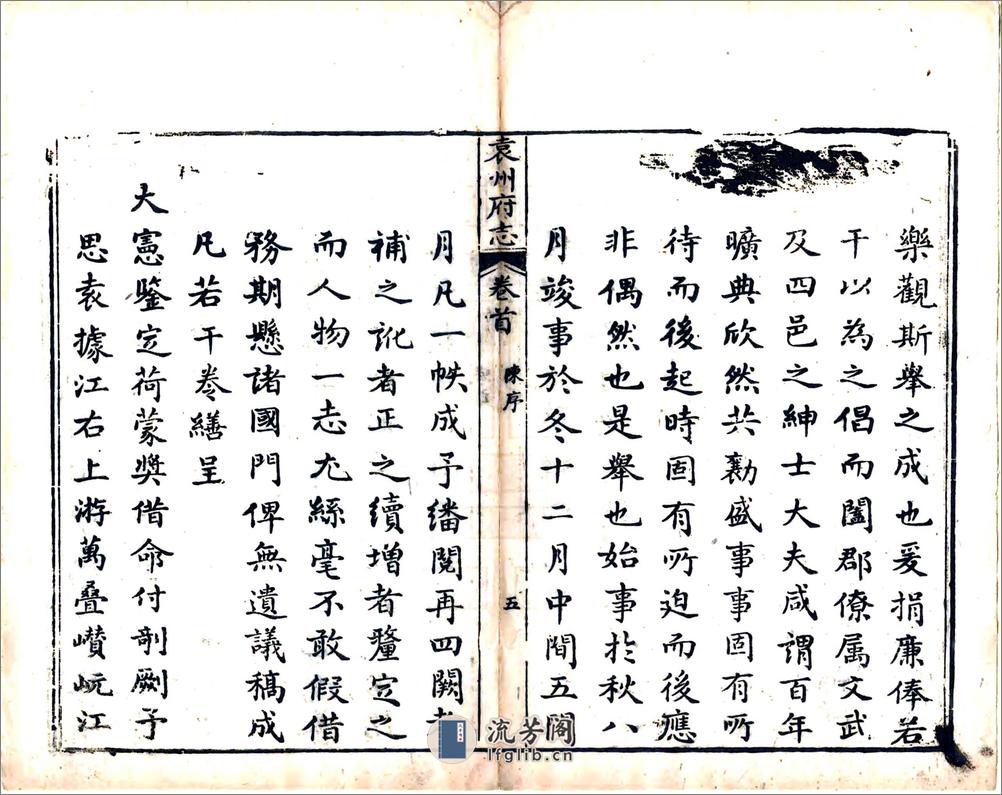 樂觀斯舉之成也爰捐廉俸若
干以為之倡而闔郡僚属文武
及四邑之紳士大夫咸謂百年
曠典欣然共勷盛事事固有所
待而後起時固有所迫而後應
非偶然也是舉也始事於秋八
月竣事於冬十二月中間五閱
袁州府志
卷首
陳序
五
月凡一帙成予繙閱再四闕者
補之訛者正之續增者釐定之
而人物一志尤絲毫不敢假借
務期懸諸國門俾無遺議稿成
凡若干卷繕呈
大憲鑒定荷蒙奬借命付剞劂予
思袁據江右上游萬叠巑岏江
流芳阁
lfglib.cn